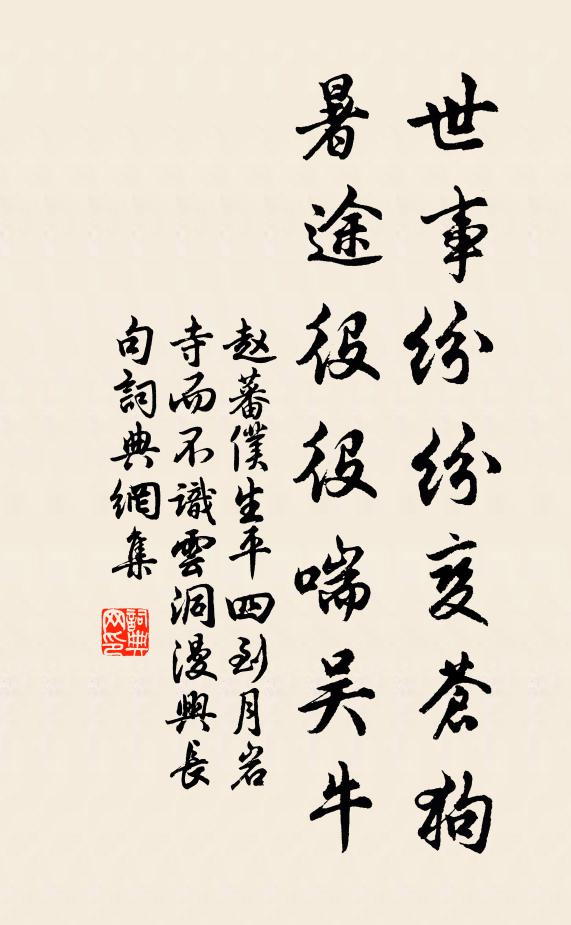 世事纷纷变苍狗
暑途役役喘吴牛
赵蕃僕生平四到月岩
寺而不識雲洞漫興長
句詞典網集
詞典网印